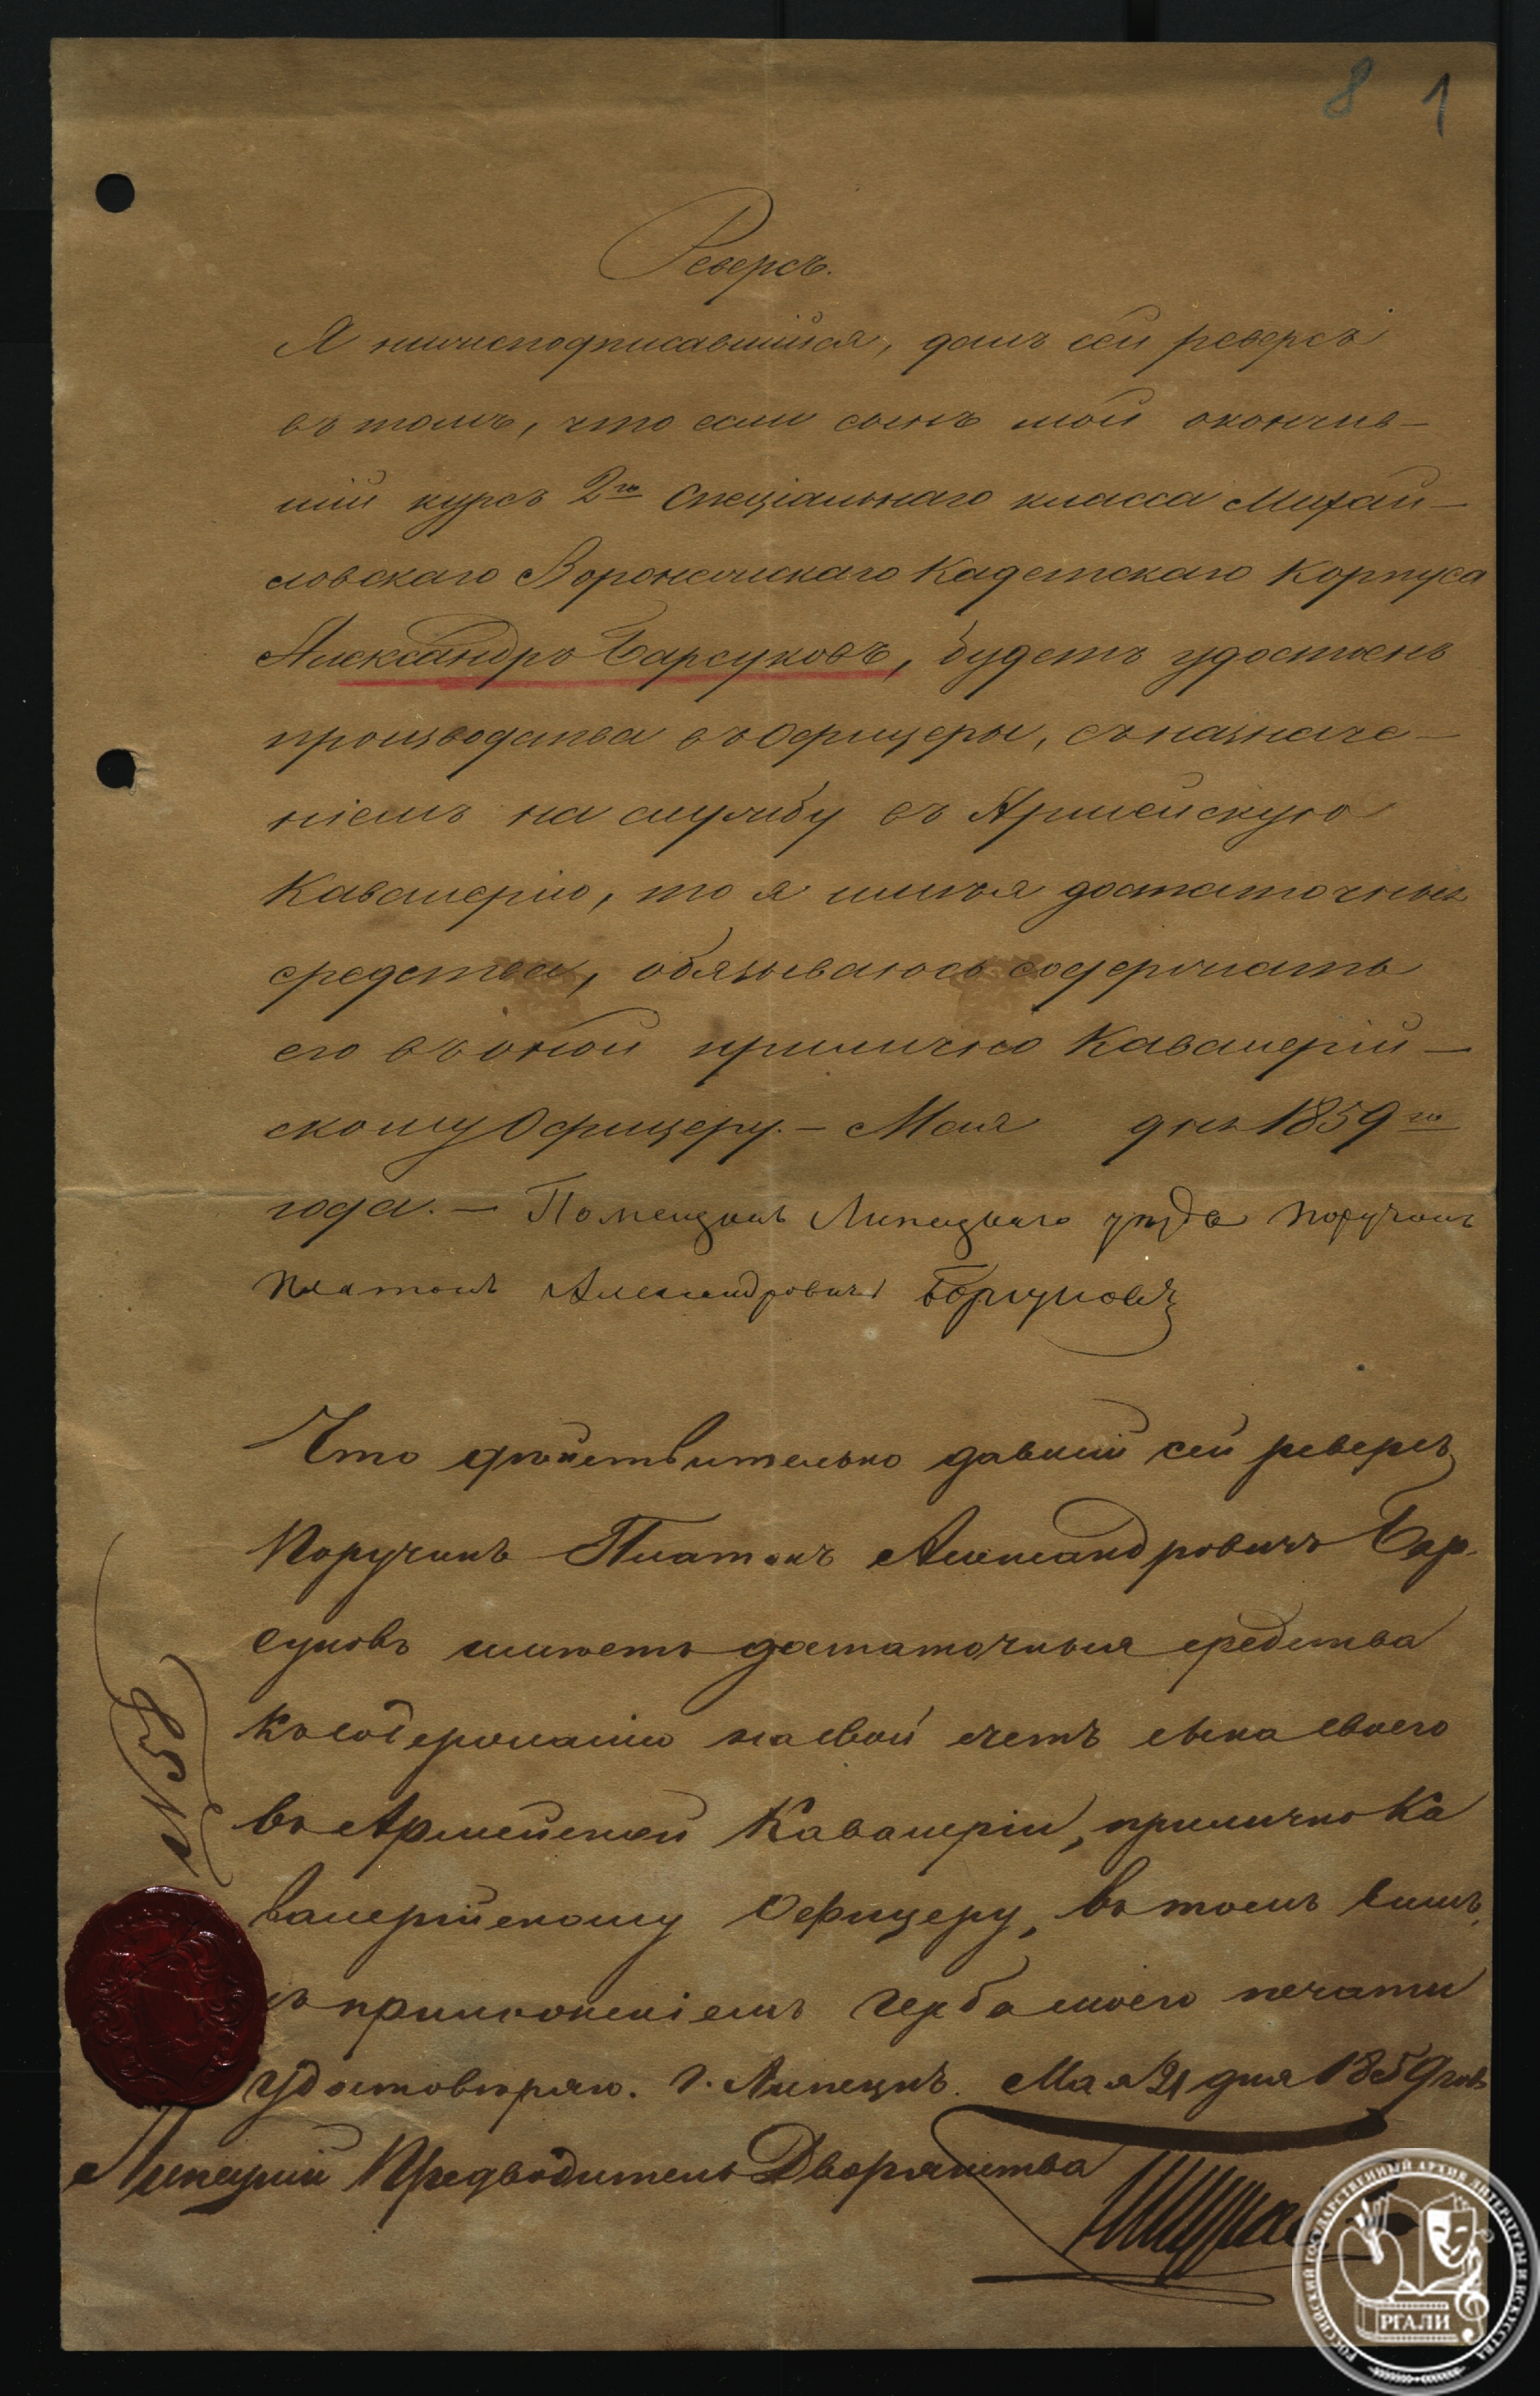 8 1
Реверсъ.
Я нижеподписавшійся, далъ сей реверсъ
въ томъ, что если сынъ мой окончив-
шій курсъ 2го Спеціальнаго класса Михай-
ловскаго Воронежскаго Кадетскаго Корпуса
Александръ Барсуковъ, будетъ удостоенъ
производства въ Офицеры, съ назначе-
ніемъ на службу въ Армейскую
Кавалерію, то я имѣя достаточныя
средства, обязываюсь содержать
его въ оной прилично Кавалерій-
скому Офицеру. – Мая дня 1859го
года. – Помещикъ Липецкаго уѣзда Поручикъ
Платонъ Александровичъ Барсуковъ
Что дѣйствительно давшій сей реверсъ
Поручикъ Платонъ Александровичъ Бар-
суковъ имѣетъ достаточныя средства
къ содержанію на свой счетъ сына своего
въ Армейской Кавалеріи, прилично Ка
валерійскому Офицеру, въ томъ симъ,
съ приложеніемъ герба моего печати
удостовѣряю. г. Липецкъ. Мая 21 дня 1859 года
Липецкій Предводитель Дворянства
№ 58
РОССИЙСКИЙ ГОСУДАРСТВЕННЫЙ АРХИВ ЛИТЕРАТУРЫ И ИСКУССТВА
РГАЛИ